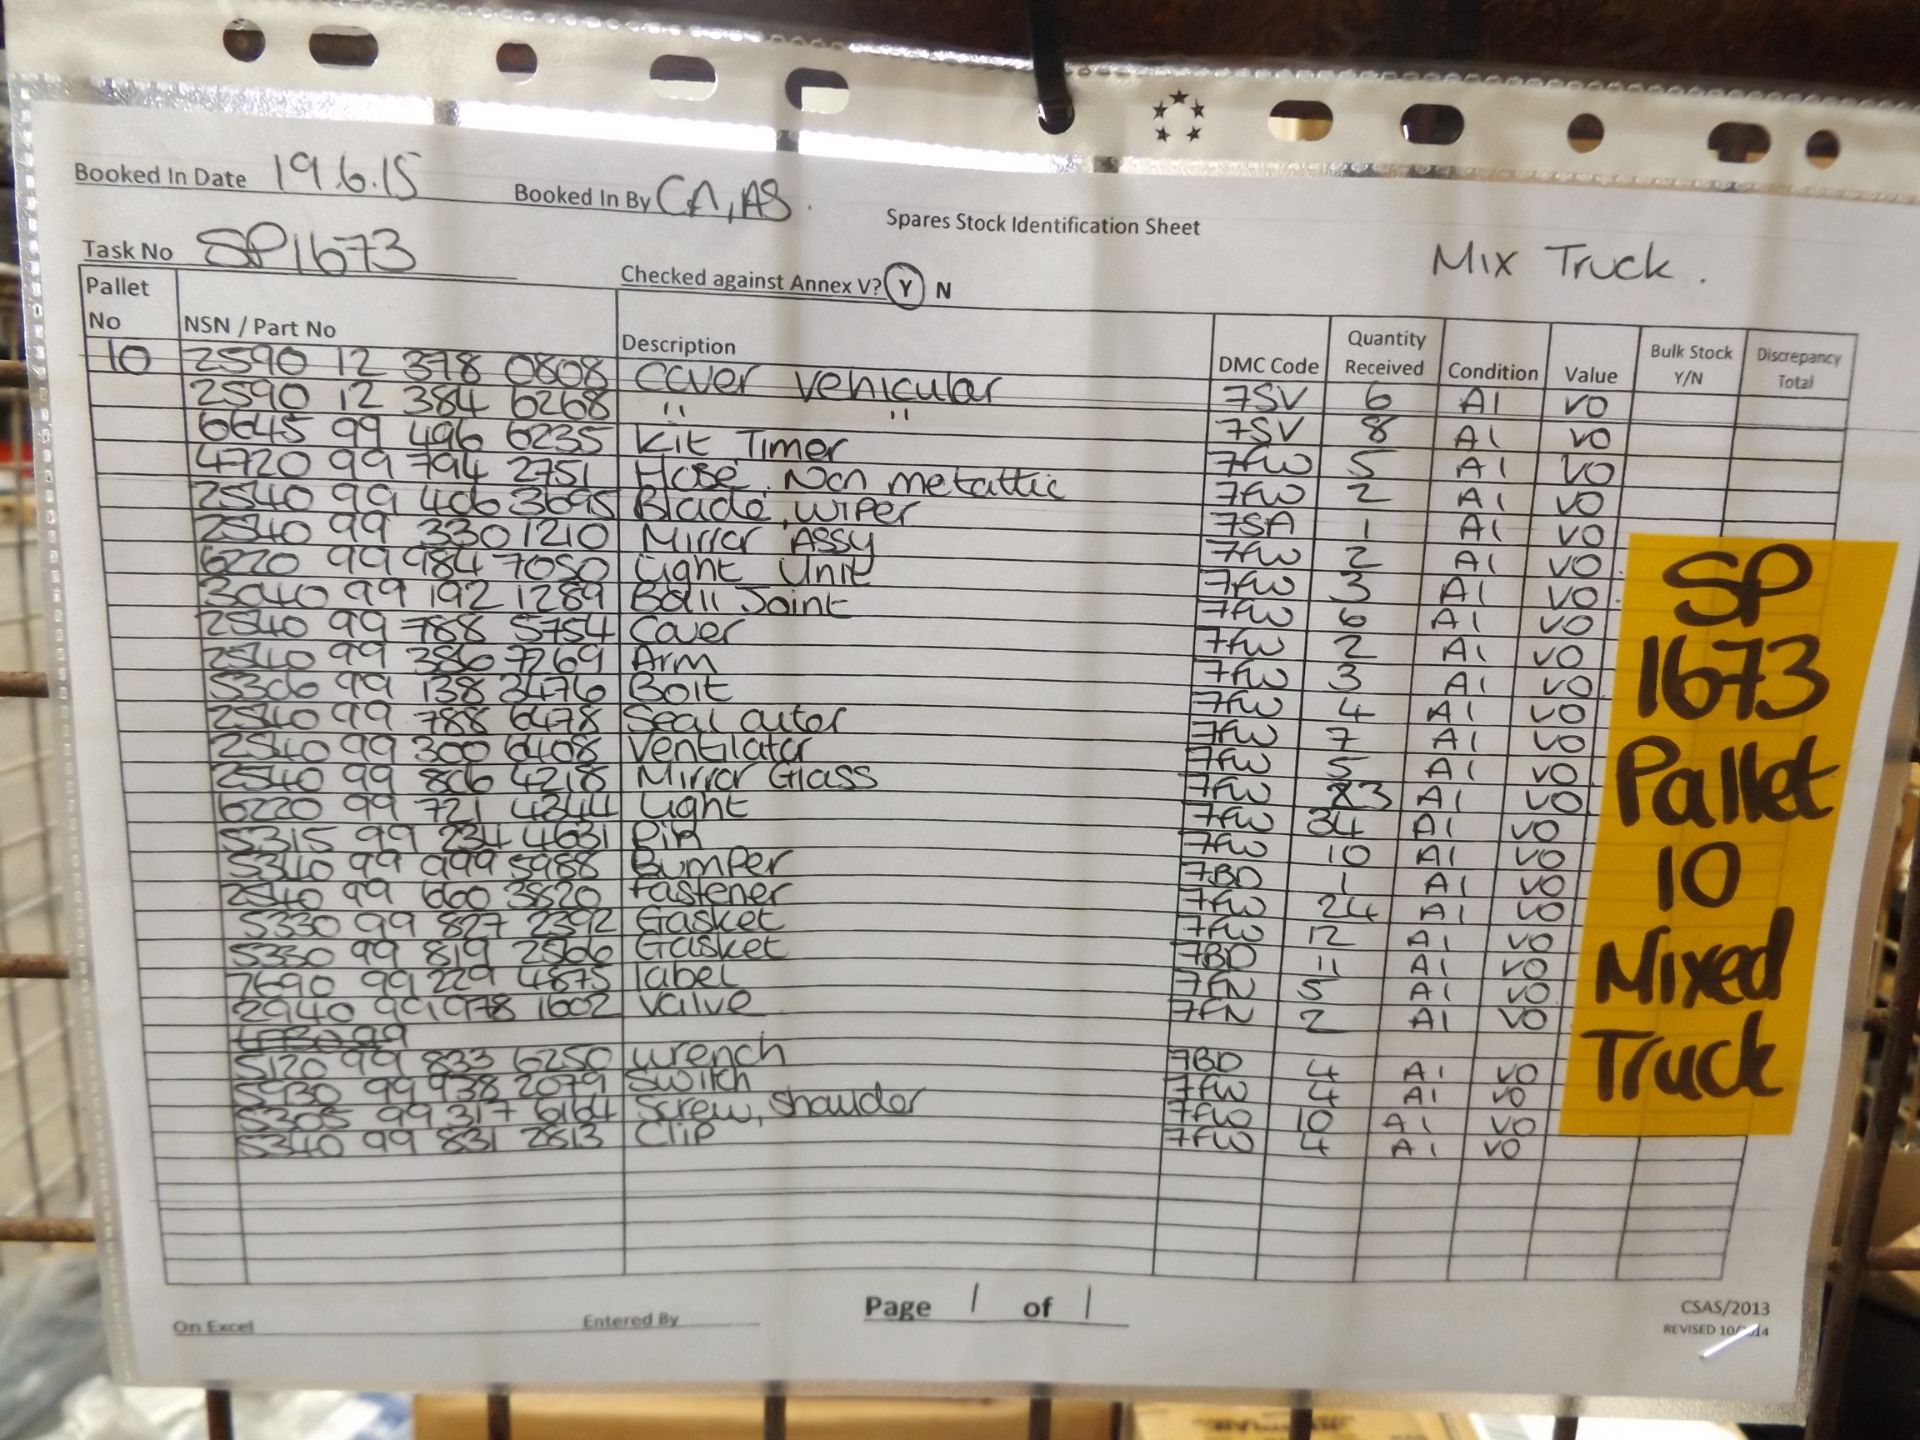 Booked In Date 19.6.15 Booked In By CA, AS.
Spares Stock Identification Sheet
Task No SP1673 Checked against Annex V? Y N Mix Truck.
Pallet No NSN / Part No Description DMC Code Quantity Received Condition Value Bulk Stock Y/N Discrepancy Total
10 2590 12 378 0808 Cover Vehicular 7SV 6 A1 VO
2590 12 384 6268 " " 7SV 8 A1 VO
6645 99 496 6235 Kit Timer 7FW 5 A1 VO
4720 99 794 2751 Hose, Non metattic 7FW 2 A1 VO
2540 99 406 3695 Blade, Wiper 7SA 1 A1 VO
2540 99 330 1210 Mirror Assy 7FW 2 A1 VO
6220 99 984 7050 Light Unit 7FW 3 A1 VO
3040 99 192 1289 Ball Joint 7FW 6 A1 VO
2540 99 788 5754 Cover 7FW 2 A1 VO
2540 99 386 7269 Arm 7FW 3 A1 VO
5306 99 138 3476 Bolt 7FW 4 A1 VO
2540 99 788 6478 Seal outer 7FW 7 A1 VO
2540 99 300 6408 Ventilator 7FW 5 A1 VO
2540 99 806 4218 Mirror Glass 7FW 23 A1 VO
6220 99 721 4344 Light 7FW 34 A1 VO
5315 99 234 4631 Pin 7FW 10 A1 VO
5340 99 999 5988 Bumper 7BD 1 A1 VO
2540 99 660 3820 Fastener 7FW 24 A1 VO
5330 99 827 2392 Gasket 7FW 12 A1 VO
5330 99 819 2566 Gasket 7BD 11 A1 VO
7690 99 229 4875 label 7FN 5 A1 VO
2940 99 978 1602 Valve 7FN 2 A1 VO
5120 99 833 6250 Wrench 7BD 4 A1 VO
5930 99 938 2079 Switch 7FW 4 A1 VO
5305 99 317 6164 Screw, Shoulder 7FW 10 A1 VO
5340 99 831 2813 Clip 7FW 4 A1 VO
SP
1673
Pallet
10
Mixed
Truck
On Excel Entered By Page 1 of 1
CSAS/2013
REVISED 10/2014